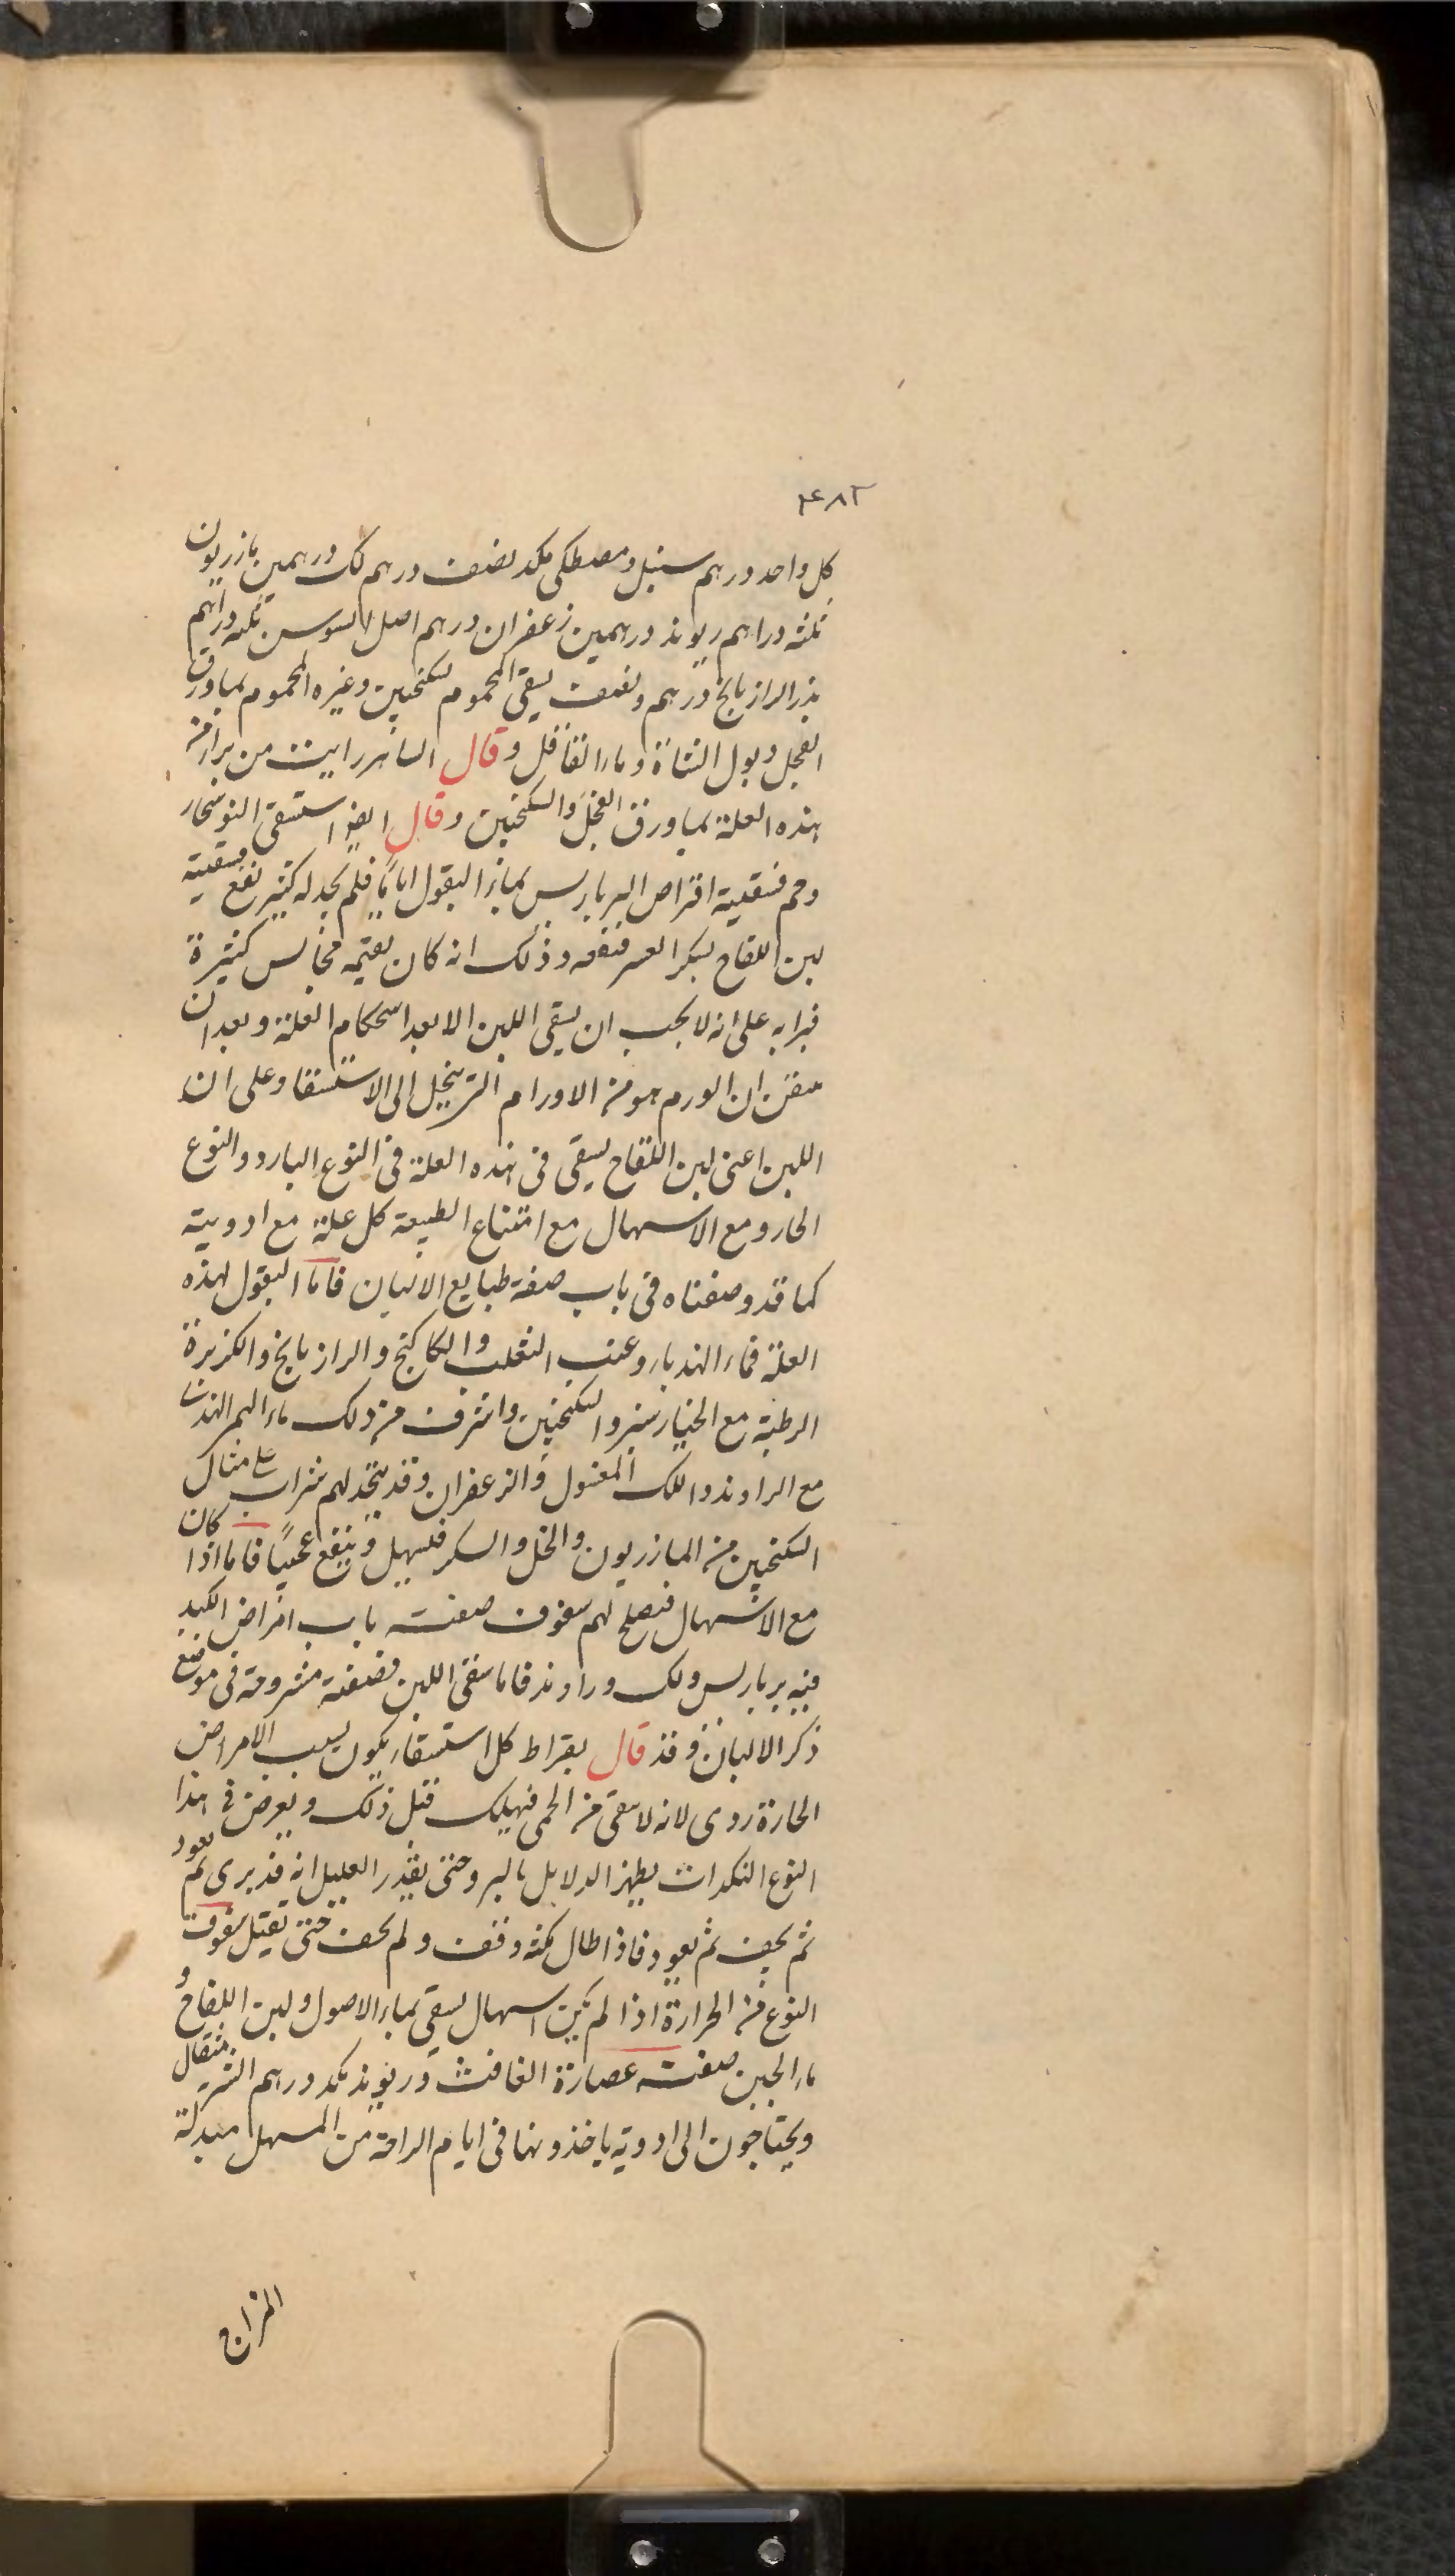 ٤٨٢
كل واحد درهم سنبل ومصطكى مكد نصف درهم لك درهمين مازريون
ثلثه دراهم ريوند درهمين زعفران درهم اصل السوسن ثلثه دراهم
بذر الرازيانج درهم ونصف يسقى المحموم بسكنجبين وغيره المحموم بماورق
الفجل وبول الشاة وماء القاقل وقال الساهر رايت من برا من
هذه العلة بماورق الفجل والسكنجبين وقال ايضا استسقى
وحم فسقيته اقراص البرباريس بماء البقول اياما فلم يجد له كثير نفع فسقيته
لبن اللقاح بسكر العشر فنفعه وذلك انه كان يقيمه مجالس كثيرة
فبرا به على انه لا يجب ان يسقى اللبن الا بعد استحكام العلة وبعد ان
ان الورم هو من الاورام التى الى الاستسقا وعلى ان
اللبن اعنى لبن اللقاح يسقى فى هذه العلة فى النوع البارد والنوع
الحار ومع الاسهال مع امتناع الطبيعة كل علة مع ادويته
كما قد وصفناه فى باب صفة طبايع الالبان فاما البقول لهذه
العلة فماء الهندباء وعنب الثعلب والكاكنج والرازيانج والكزبرة
الرطبة مع الخيارشنبر والسكنجبين واشرف من ذلك ماء
مع الراوند واللك المغسول والزعفران وقد يتخذ لهم شراب على مثال
السكنجبين من المازريون والخل والسكر فيسهل وينفع عجيبا فاما اذا كان
مع الاسهال فيصلح لهم سفوف صفته باب امراض الكبد
فيه برباريس ولك وراوند فاما سقى اللبن فصفته مشروحة فى موضع
ذكر الالبان وقد قال بقراط كل استسقاء يكون بسبب الامراض
الحارة ردى لانه لا ينقى من الحمى فيهلك قبل ذلك ويعرض فى هذا
النوع النكدات يظهر الدلايل بالبرو حتى يقدر العليل انه قد برى ثم يعود
ثم يجف ثم يعود فاذا طال مكثه وقف ولم يجف حتى يقتل سفوف
النوع من الحرارة اذا لم يكن اسهال يسقى بماء الاصول ولبن اللقاح و
ماء الجبن صفته عصارة الغافث وريوند مكد درهم الشربة مثقال
ويحتاجون الى ادوية ياخذونها فى ايام الراحة من المسهل مبدلة
المزاج